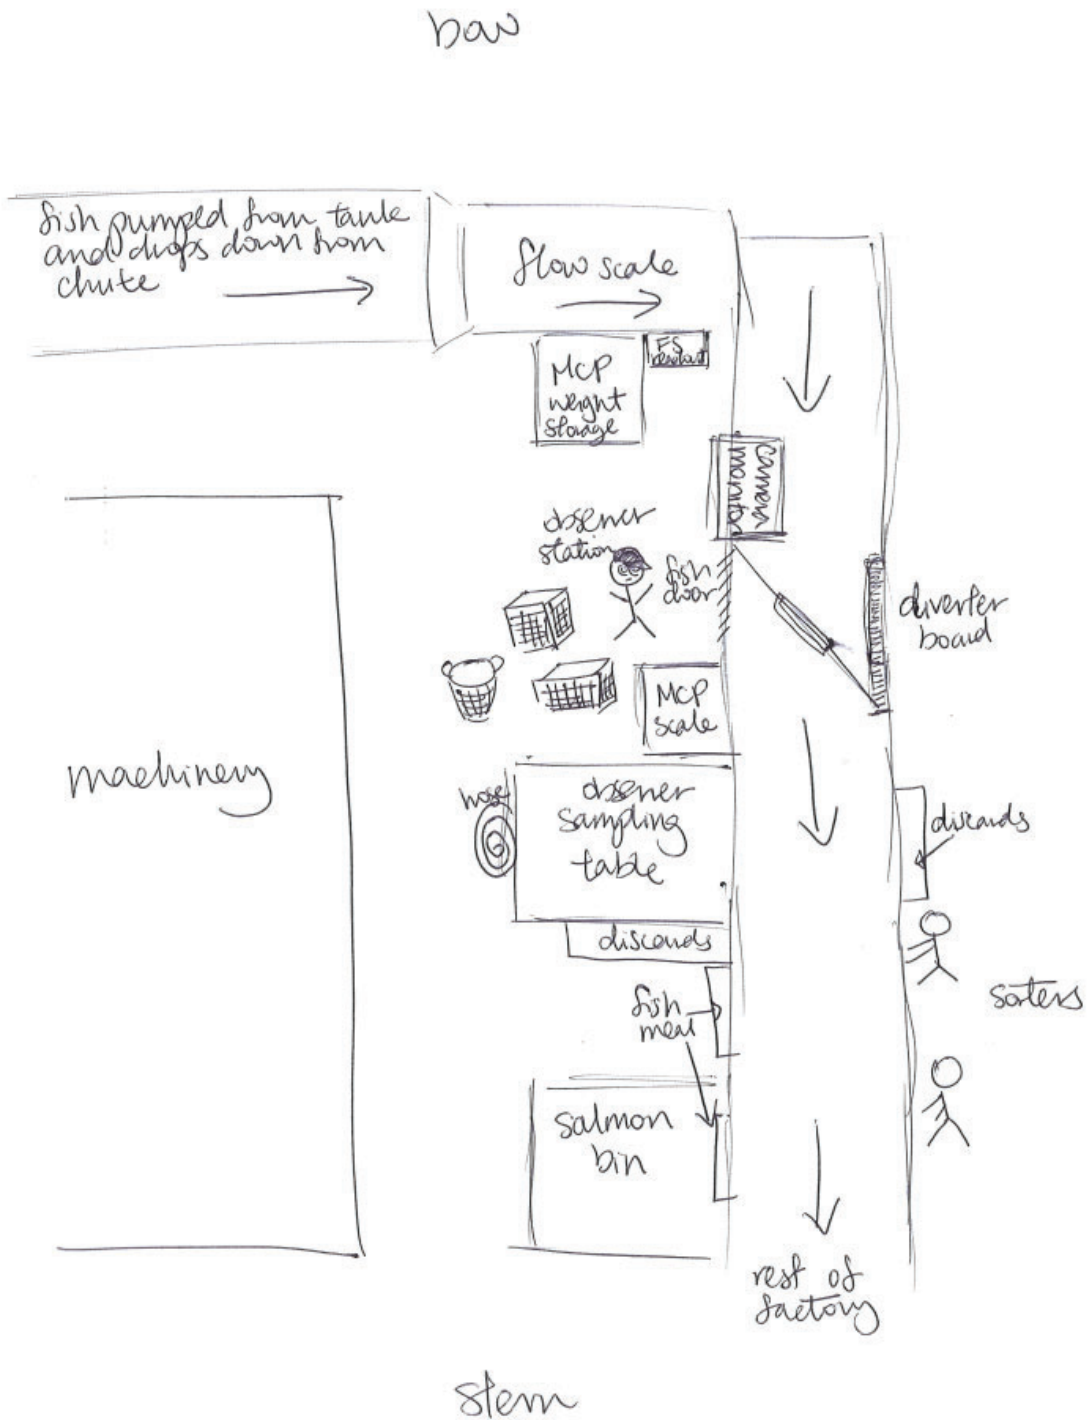 bow
fish pumped from tank
and drops down from
chute
flow scale
MCP
weight
storage
FS
camera
monitor
observer
station
fish
door
diverter
board
MCP
scale
machinery
hose
observer
sampling
table
discards
discards
fish
meal
sorters
salmon
bin
rest of
factory
stern